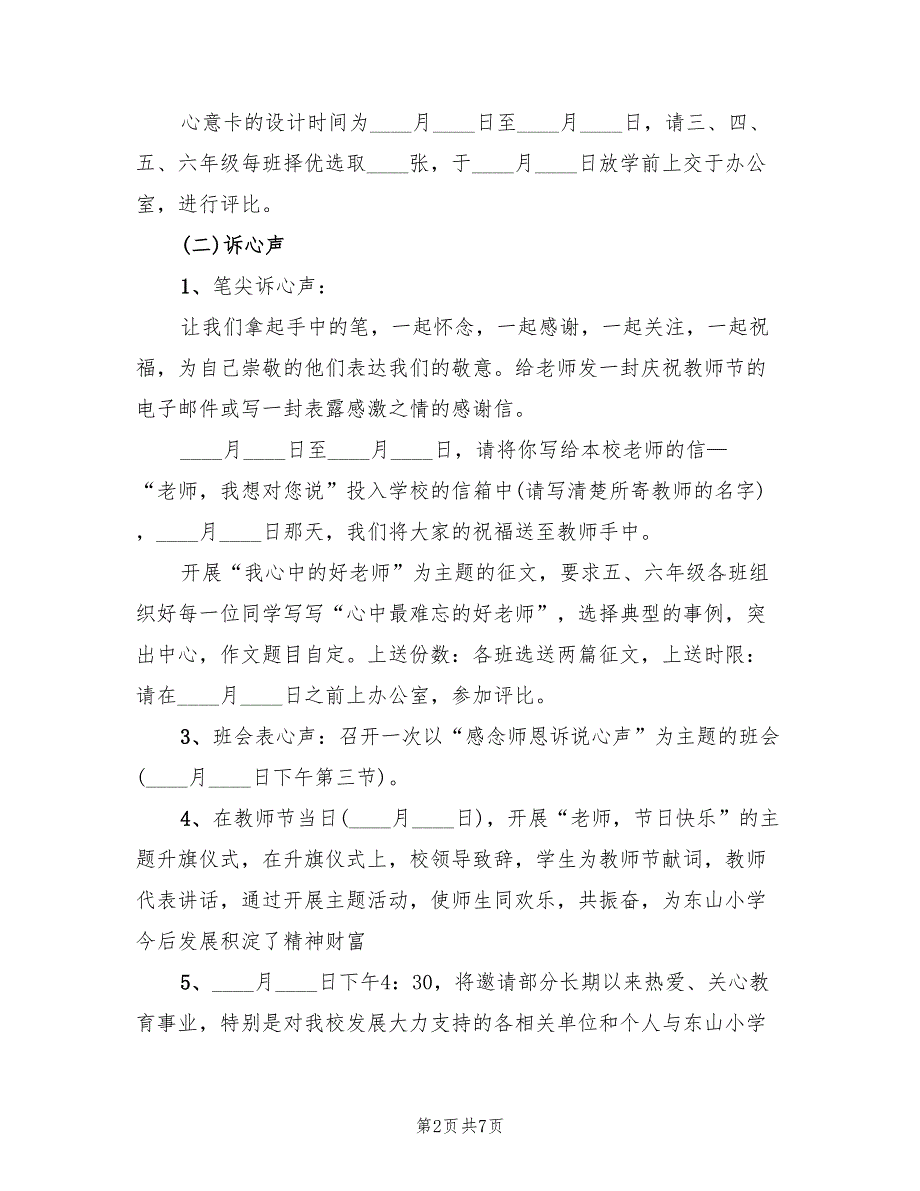 心意卡的设计时间为____月____日至____月____日，请三、四、
五、六年级每班择优选取____张，于____月____日放学前上交于办公
室，进行评比。
(二)诉心声
1、笔尖诉心声：
让我们拿起手中的笔，一起怀念，一起感谢，一起关注，一起祝
福，为自己崇敬的他们表达我们的敬意。给老师发一封庆祝教师节的
电子邮件或写一封表露感激之情的感谢信。
____月____日至____月____日，请将你写给本校老师的信—
“老师，我想对您说”投入学校的信箱中(请写清楚所寄教师的名字)
，____月____日那天，我们将大家的祝福送至教师手中。
开展“我心中的好老师”为主题的征文，要求五、六年级各班组
织好每一位同学写写“心中最难忘的好老师”，选择典型的事例，突
出中心，作文题目自定。上送份数：各班选送两篇征文，上送时限：
请在____月____日之前上办公室，参加评比。
3、班会表心声：召开一次以“感念师恩诉说心声”为主题的班会
(____月____日下午第三节)。
4、在教师节当日(____月____日)，开展“老师，节日快乐”的主
题升旗仪式，在升旗仪式上，校领导致辞，学生为教师节献词，教师
代表讲话，通过开展主题活动，使师生同欢乐，共振奋，为东山小学
今后发展积淀了精神财富
5、____月____日下午4：30，将邀请部分长期以来热爱、关心教
育事业，特别是对我校发展大力支持的各相关单位和个人与东山小学
第2页 共7页